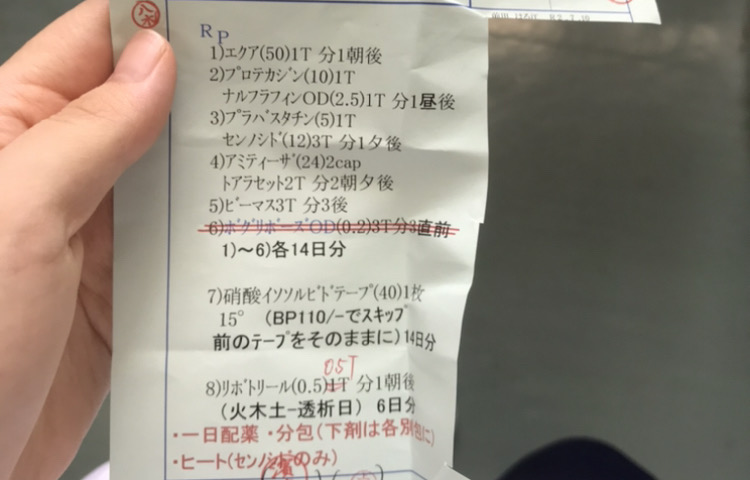 八木
RP
1)エクア(50)1T 分1朝後
2)プロテカジン(10)1T
ナルフラフィンOD(2.5)1T 分1昼後
3)プラバスタチン(5)1T
センノシド(12)3T 分1夕後
4)アミティーザ(24)2cap
トアラセット2T 分2朝夕後
5)ビーマス3T 分3後
6)ボグリボースOD(0.2)3T分3直前
1)～6)各14日分
7)硝酸イソソルビドテープ(40)1枚
15° (BP110/-でスキップ
前のテープをそのままに)14日分
0.5T
8)リボトリール(0.5)1T 分1朝後
(火木土-透析日) 6日分
・一日配薬・分包(下剤は各別包に)
・ヒート(センノシドのみ)